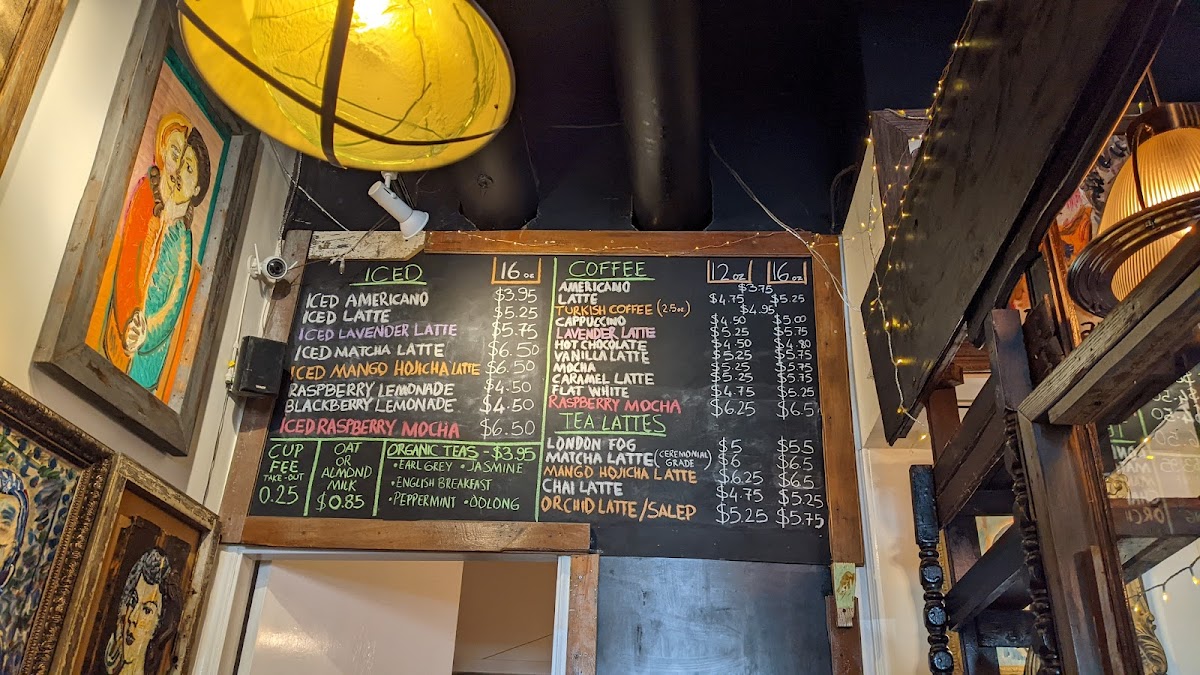 ICED 16 oz
ICED AMERICANO $3.95
ICED LATTE $5.25
ICED LAVENDER LATTE $5.75
ICED MATCHA LATTE $6.50
ICED MANGO HOJICHA LATTE $6.50
RASPBERRY LEMONADE $4.50
BLACKBERRY LEMONADE $4.50
ICED RASPBERRY MOCHA $6.50
CUP
FEE
TAKE-OUT
0.25
OAT
OR
ALMOND
MILK
$0.85
ORGANIC TEAS - $3.95
• EARL GREY • JASMINE
• ENGLISH BREAKFAST
• PEPPERMINT • OOLONG
COFFEE 12 oz 16 oz
AMERICANO $3.75
LATTE $4.75 $5.25
TURKISH COFFEE (2.5oz) $4.95
CAPPUCCINO $4.50 $5.00
LAVENDER LATTE $5.25 $5.75
HOT CHOCOLATE $4.50 $4.80
VANILLA LATTE $5.25 $5.75
MOCHA $5.25 $5.75
CARAMEL LATTE $5.25 $5.75
FLAT WHITE $4.75 $5.25
RASPBERRY MOCHA $6.25 $6.5
TEA LATTES
LONDON FOG $5 $5.5
MATCHA LATTE (CEREMONIAL GRADE) $6 $6.5
MANGO HOJICHA LATTE $6.25 $6.5
CHAI LATTE $4.75 $5.25
ORCHID LATTE/SALEP $5.25 $5.75